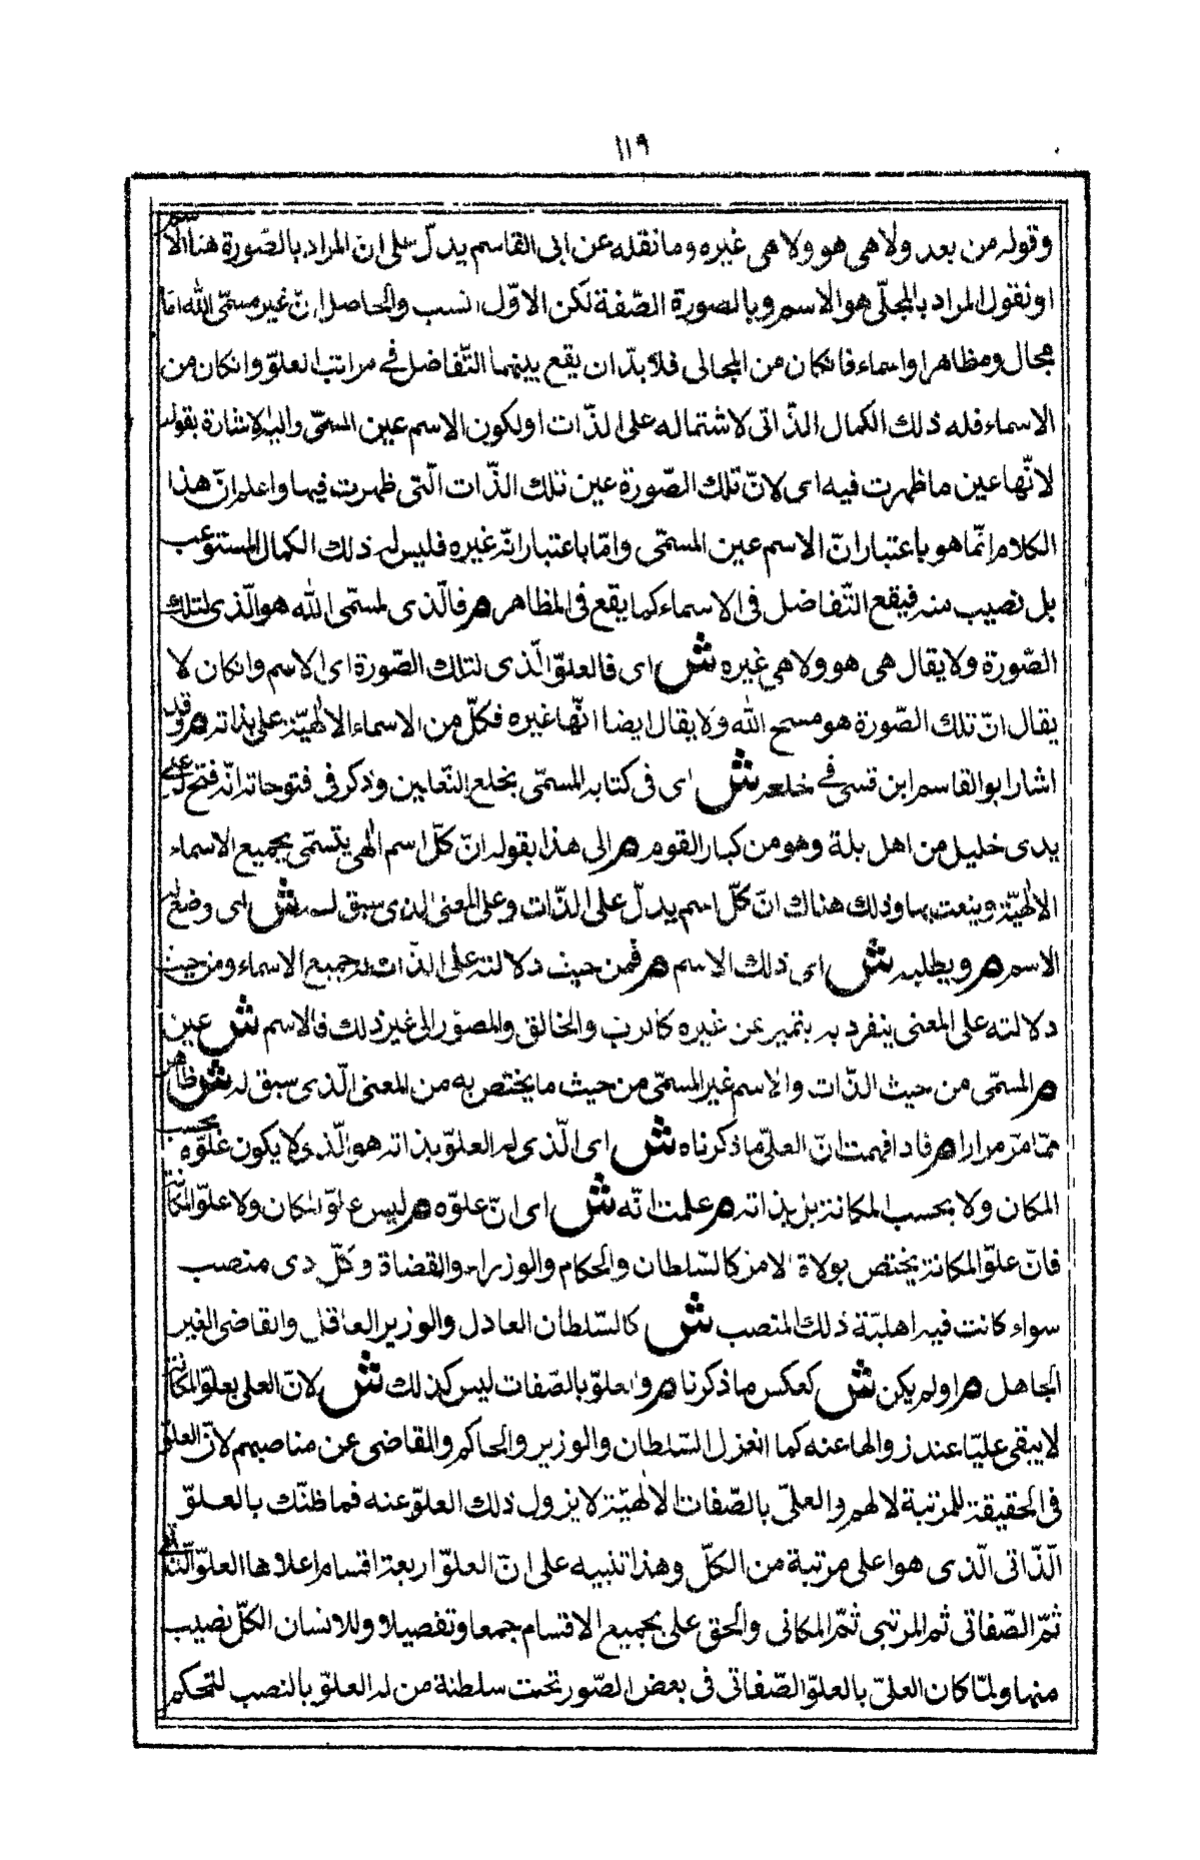 ١١٩
وقوله من بعد ولا هى هو ولا هى غيره وما نقله عن ابى القاسم يدلّ على انّ المراد بالصّورة هنا الاسم
او نقول المراد بالمجلّى هو الاسم وبالصورة الصّفة لكن الاوّل انسب والحاصل انّ غير مسمّى الله امّا
مجال ومظاهر او اسماء فان كان من المجالى فلا بدّ ان يقع بينهما التّفاضل فى مراتب العلوّ وان كان من
الاسماء فله ذلك الكمال الذّاتى لاشتماله على الذّات او لكون الاسم عين المسمّى واليه الاشارة بقوله
لانّها عين ما ظهرت فيه اى لانّ تلك الصّورة عين تلك الذّات الّتى ظهرت فيها واعلم انّ هذا
الكلام انّما هو باعتبار انّ الاسم عين المسمّى وامّا باعتبار انّه غيره فليس له ذلك الكمال المستوعب
بل نصيب منه فيقع التّفاضل فى الاسماء كما يقع فى المظاهر م فالّذى لمسمّى الله هو الّذى لتلك
الصّورة ولا يقال هى هو ولا هى غيره ش اى فالعلوّ الّذى لتلك الصّورة اى الاسم وان كان لا
يقال انّ تلك الصّورة هو مسمى الله ولا يقال ايضا انّها غيره فكلّ من الاسماء الالهيّة على بذاته م وقد
اشار ابو القاسم ابن قسى فى خلعه ش اى فى كتابه المسمّى بخلع النّعلين وذكر فى فتوحاته انّه فتح له على
يدى خليل من اهل بلة وهو من كبار القوم م الى هذا بقوله انّ كلّ اسم الهى يتسمّى بجميع الاسماء
الالهيّة وينعت بها وذلك هناك انّ كلّ اسم يدلّ على الذّات وعلى المعنى الذى سبق له ش اى وضع له
الاسم م ويطلبه ش اى ذلك الاسم م فمن حيث دلالته على الذّات له جميع الاسماء ومن حيث
دلالته على المعنى ينفرد به يتميز عن غيره كالرب والخالق والمصوّر الى غير ذلك فالاسم ش عين
م المسمّى من حيث الذّات والاسم غير المسمّى من حيث ما يختص به من المعنى الّذى سبق له ش ظاهر
ممّا مرّ مرارا م فاذا فهمت انّ العلىّ ما ذكرناه ش اى الّذى له العلوّ بذاته هو الّذى لا يكون علوّه بحسب
المكان ولا بحسب المكانة بل بذاته م علمت انّه ش اى انّ علوّه م ليس علوّ المكان ولا علوّ المكانة
فانّ علوّ المكانة يختص بولاة الامر كالسّلطان والحكام والوزراء والقضاة وكلّ ذى منصب
سواء كانت فيه اهليّة ذلك المنصب ش كالسّلطان العادل والوزير العاقل والقاضى الغير
الجاهل م او لم يكن ش كعكس ما ذكرنا م والعلوّ بالصّفات ليس كذلك ش لانّ العلى بعلوّ المكانة
لا يبقى عليّا عند زوالها عنه كما انعزل السّلطان والوزير والحاكم والقاضى عن مناصبهم لانّ العلوّ
فى الحقيقة للمرتبة لا لهم والعلىّ بالصّفات الالهيّة لا يزول ذلك العلوّ عنه فما ظنّك بالعلوّ
الذّاتى الّذى هو اعلى مرتبة من الكلّ وهذا تنبيه على انّ العلوّ اربعة اقسام اعلاها العلوّ الذّاتى
ثمّ الصّفاتى ثمّ المرتبى ثمّ المكانى والحق على بجميع الاقسام جمعا وتفصيلا وللانسان الكلّ نصيب
منها ولمّا كان العلىّ بالعلوّ الصّفاتى فى بعض الصّور تحت سلطنة من له العلوّ بالنصب لتحكم